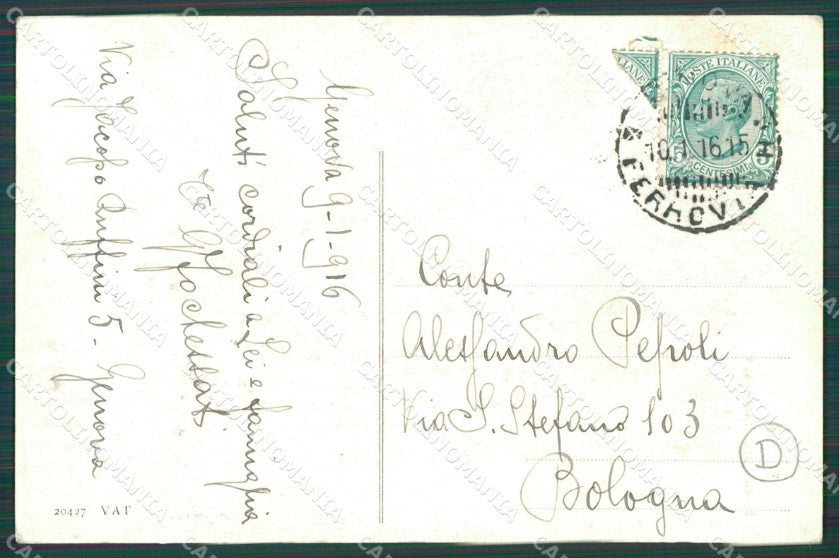 Genova 9-1-916
Saluti cordiali a Lei e famiglia
Via Jacopo Ruffini 5 - Genova
20427 VAT
POSTE ITALIANE
CENTESIMI
10.1 16.15
FERROVIA
Conte
Alessandro Pepoli
Via S. Stefano 103
Bologna
D
CARTOLINOMANIA